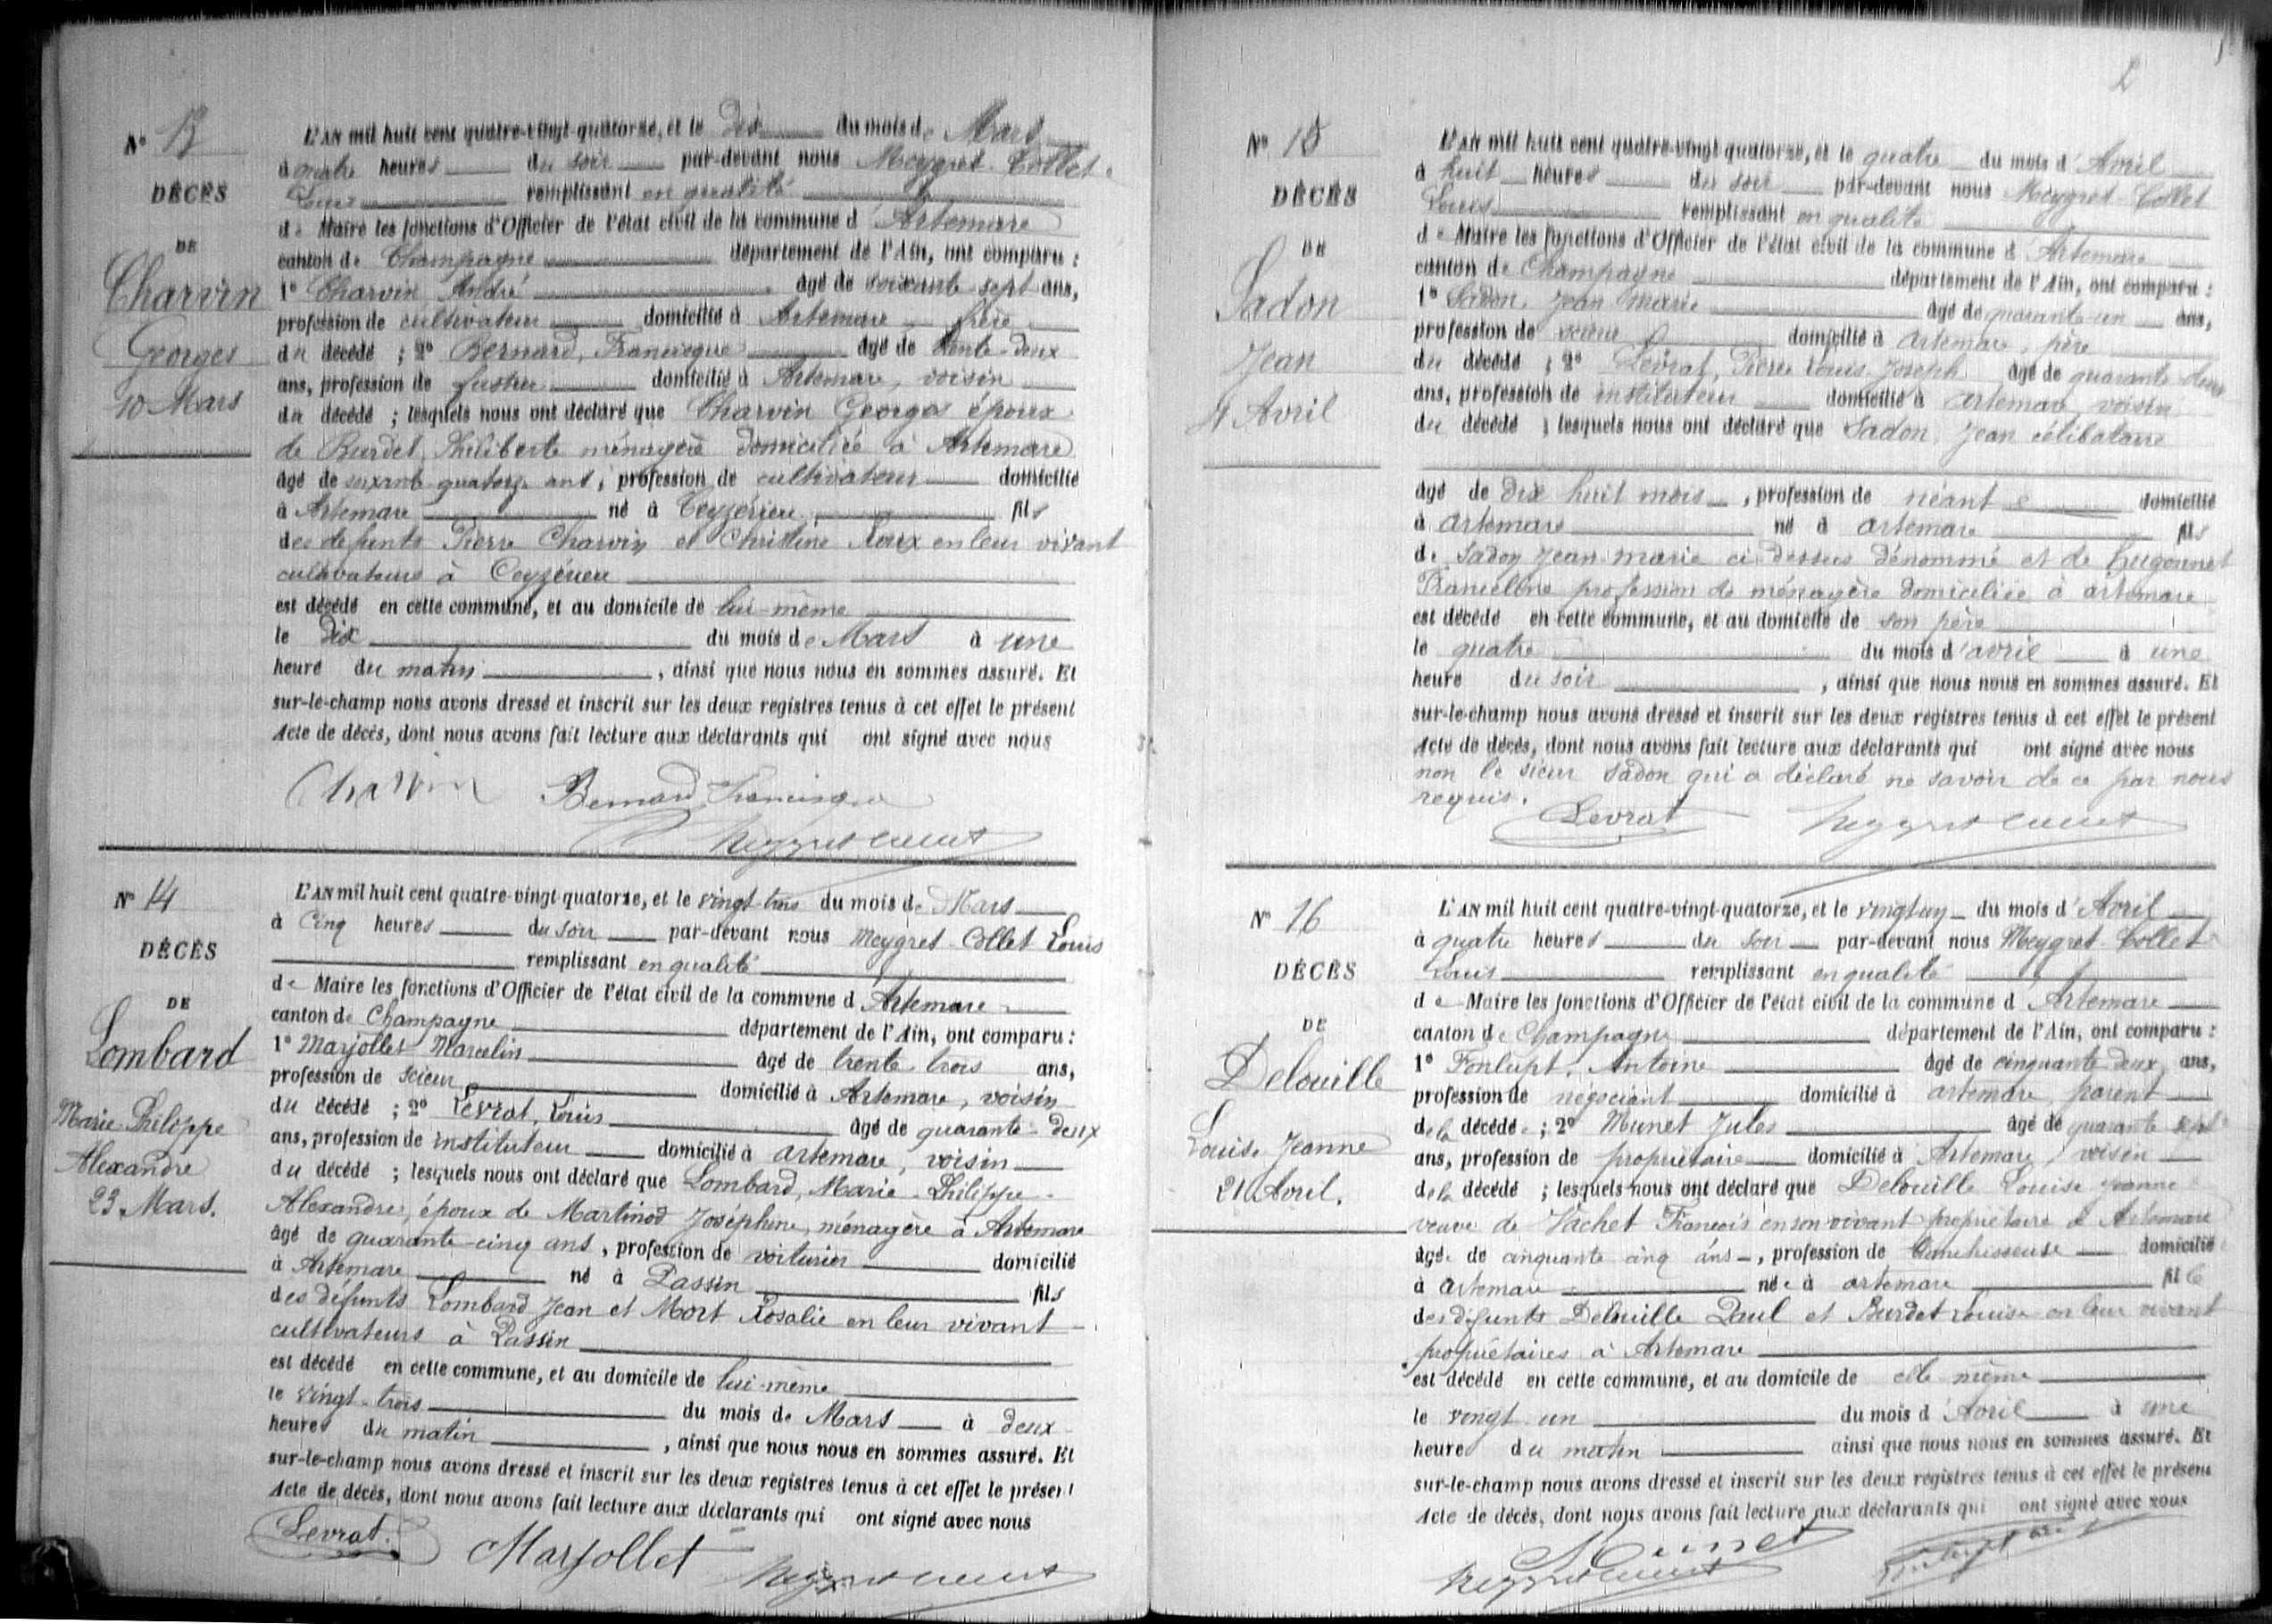 N° 13
DÉCÈS
DE
Charvin
Georges
10 Mars
L'AN mil huit cent quatre-vingt-quatorze, et le dix du mois de Mars
à quatre heures du soir par-devant nous Meygret-Collet
Louis remplissant en qualité
de Maire les fonctions d'Officier de l'état civil de la commune d'Artemare
canton de Champagne département de l'Ain, ont comparu :
1° Charvin, André âgé de soixante sept ans,
profession de cultivateur domicilié à Artemare frère
du décédé ; 2° Bernard, Francisque âgé de trente-deux
ans, profession de domicilié à Artemare, voisin
du décédé ; lesquels nous ont déclaré que Charvin Georges époux
de Burdet, Philiberte ménagère domiciliée à Artemare
âgé de soixante quatorze ans, profession de cultivateur domicilié
à Artemare né à Ceyzérieu fils
des défunts Pierre Charvin et Christine Roux en leur vivant
cultivateurs à Ceyzérieu
est décédé en cette commune, et au domicile de lui-même
le dix du mois de Mars à une
heure du matin, ainsi que nous nous en sommes assuré. Et
sur-le-champ nous avons dressé et inscrit sur les deux registres tenus à cet effet le présent
Acte de décès, dont nous avons fait lecture aux déclarants qui ont signé avec nous
Charvin Bernard Francisque
Meygret Collet
N° 14
DÉCÈS
DE
Lombard
Marie Philippe
Alexandre
23 Mars.
L'AN mil huit cent quatre-vingt-quatorze, et le vingt-trois du mois de Mars
à Cinq heures du soir par-devant nous Meygret-Collet Louis
remplissant en qualité
de Maire les fonctions d'Officier de l'état civil de la commune d'Artemare
canton de Champagne département de l'Ain, ont comparu :
1° Marjollet Marcelin âgé de trente trois ans,
profession de scieur domicilié à Artemare, voisin
du décédé ; 2° Levrat, Louis âgé de quarante-deux
ans, profession de instituteur domicilié à artemare, voisin
du décédé ; lesquels nous ont déclaré que Lombard, Marie-Philippe-
Alexandre, époux de Martinod Joséphine, ménagère à Artemare
âgé de quarante-cinq ans, profession de voiturier domicilié
à Artemare né à Passin fils
des défunts Lombard Jean et Mort Rosalie en leur vivant
cultivateurs à Passin
est décédé en cette commune, et au domicile de lui-même
le vingt-trois du mois de Mars à deux
heures du matin, ainsi que nous nous en sommes assuré. Et
sur-le-champ nous avons dressé et inscrit sur les deux registres tenus à cet effet le présent
Acte de décès, dont nous avons fait lecture aux déclarants qui ont signé avec nous
Levrat. Marjollet Meygret Collet
N° 15
DÉCÈS
DE
Sadon
Jean
4 Avril
L'AN mil huit cent quatre-vingt-quatorze, et le quatre du mois d'Avril
à huit heures du soir par-devant nous Meygret-Collet
Louis remplissant en qualité
de Maire les fonctions d'Officier de l'état civil de la commune d'Artemare
canton de Champagne département de l'Ain, ont comparu :
1° Sadon, Jean marie âgé de quarante-un ans,
profession de scieur domicilié à artemare, père
du décédé ; 2° Levrat, Pierre Louis Joseph âgé de quarante-deux
ans, profession de instituteur domicilié à artemare voisin
du décédé ; lesquels nous ont déclaré que Sadon, Jean célibataire
âgé de dix huit mois, profession de néant domicilié
à artemare né à artemare fils
de Sadon Jean-marie ci-dessus dénommé et de Hugonnet
Franceline profession de ménagère domiciliée à artemare
est décédé en cette commune, et au domicile de son père
le quatre du mois d'avril à une
heure du soir, ainsi que nous nous en sommes assuré. Et
sur-le-champ nous avons dressé et inscrit sur les deux registres tenus à cet effet le présent
Acte de décès, dont nous avons fait lecture aux déclarants qui ont signé avec nous
non le sieur Sadon qui a déclaré ne savoir de ce par nous
requis.
Levrat Meygret Collet
N° 16
DÉCÈS
DE
Delouille
Louise Jeanne
21 Avril.
L'AN mil huit cent quatre-vingt-quatorze, et le vingt un du mois d'Avril
à quatre heures du soir par-devant nous Meygret-Collet
Louis remplissant en qualité
de Maire les fonctions d'Officier de l'état civil de la commune d'Artemare
canton de Champagne département de l'Ain, ont comparu :
1° Fonlupt, Antoine âgé de cinquante deux ans,
profession de négociant domicilié à artemare, parent
de la décédée ; 2° Munet Jules âgé de quarante sept
ans, profession de propriétaire domicilié à Artemare, voisin
de la décédé ; lesquels nous ont déclaré que Delouille Louise Jeanne
veuve de Vachet François en son vivant propriétaire à Artemare
âgée de cinquante cinq ans, profession de blanchisseuse domicilié
à artemare née à artemare fille
des défunts Delouille Paul et Burdet Louise en leur vivant
propriétaires à Artemare
est décédé en cette commune, et au domicile de elle-même
le vingt-un du mois d'Avril à une
heure du matin ainsi que nous nous en sommes assuré. Et
sur-le-champ nous avons dressé et inscrit sur les deux registres tenus à cet effet le présent
Acte de décès, dont nous avons fait lecture aux déclarants qui ont signé avec nous
Munet
Meygret Collet